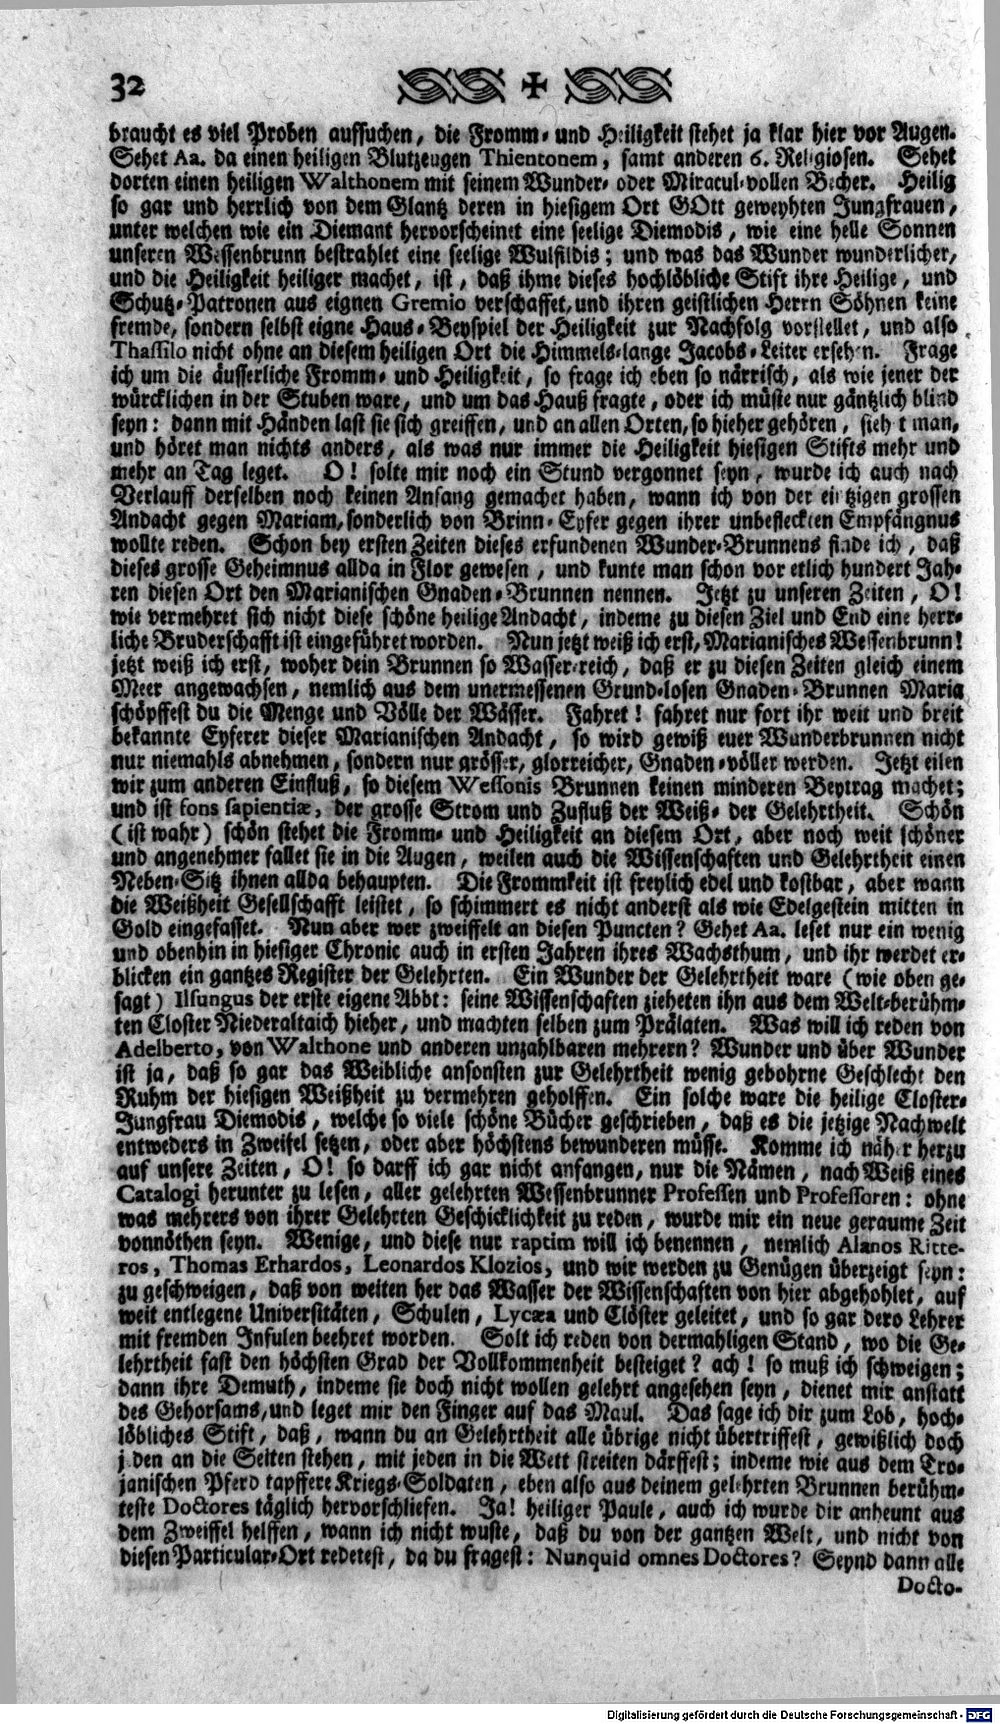 32
braucht es viel Proben auffsuchen, die Fromm- und Heiligkeit stehet ja klar hier vor Augen.
Sehet Aa. da einen heiligen Blutzeugen Thientonem, samt anderen 6. Religiosen. Sehet
dorten einen heiligen Walthonem mit seinem Wunder- oder Miracul-vollen Becher. Heilig
so gar und herrlich von dem Glantz deren in hiesigem Ort GOtt geweyhten Jungfrauen,
unter welchen wie ein Diemant hervorscheinet eine seelige Diemodis, wie eine helle Sonnen
unseren Wessenbrunn bestrahlet eine seelige Wulfildis; und was das Wunder wunderlicher,
und die Heiligkeit heiliger machet, ist, daß ihme dieses hochlöbliche Stift ihre Heilige, und
Schutz-Patronen aus eignen Gremio verschaffet, und ihren geistlichen Herrn Söhnen keine
fremde, sondern selbst eigne Haus-Beyspiel der Heiligkeit zur Nachfolg vorstellet, und also
Thassilo nicht ohne an diesem heiligen Ort die Himmels-lange Jacobs-Leiter ersehen. Frage
ich um die äusserliche Fromm- und Heiligkeit, so frage ich eben so närrisch, als wie jener der
würcklichen in der Stuben ware, und um das Hauß fragte, oder ich müste nur gäntzlich blind
seyn: dann mit Händen last sie sich greiffen, und an allen Orten, so hieher gehören, sieh t man,
und höret man nichts anders, als was nur immer die Heiligkeit hiesigen Stifts mehr und
mehr an Tag leget. O! solte mir noch ein Stund vergonnet seyn, wurde ich auch nach
Verlauff derselben noch keinen Anfang gemachet haben, wann ich von der eintzigen grossen
Andacht gegen Mariam, sonderlich von Brinn-Eyfer gegen ihrer unbefleckten Empfängnus
wollte reden. Schon bey ersten Zeiten dieses erfundenen Wunder-Brunnens finde ich, daß
dieses grosse Geheimnus allda in Flor gewesen, und kunte man schon vor etlich hundert Jah-
ren diesen Ort den Marianischen Gnaden-Brunnen nennen. Jetzt zu unseren Zeiten, O!
wie vermehret sich nicht diese schöne heilige Andacht, indeme zu diesen Ziel und End eine herr-
liche Bruderschafft ist eingeführet worden. Nun jetzt weiß ich erst, Marianisches Wessenbrunn!
jetzt weiß ich erst, woher dein Brunnen so Wasser-reich, daß er zu diesen Zeiten gleich einem
Meer angewachsen, nemlich aus dem unermessenen Grund-losen Gnaden-Brunnen Maria
schöpffest du die Menge und Völle der Wässer. Fahret! fahret nur fort ihr weit und breit
bekannte Eyferer dieser Marianischen Andacht, so wird gewiß euer Wunderbrunnen nicht
nur niemahls abnehmen, sondern nur grösser, glorreicher, Gnaden-völler werden. Jetzt eilen
wir zum anderen Einfluß, so diesem Wessonis Brunnen keinen minderen Beytrag machet;
und ist fons sapientiæ, der grosse Strom und Zufluß der Weiß- der Gelehrtheit. Schön
(ist wahr) schön stehet die Fromm- und Heiligkeit an diesem Ort, aber noch weit schöner
und angenehmer fallet sie in die Augen, weilen auch die Wissenschaften und Gelehrtheit einen
Neben-Sitz ihnen allda behaupten. Die Frommkeit ist freylich edel und kostbar, aber wann
die Weißheit Gesellschafft leistet, so schimmert es nicht anderst als wie Edelgestein mitten in
Gold eingefasset. Nun aber wer zweiffelt an diesen Puncten? Gehet Aa. leset nur ein wenig
und obenhin in hiesiger Chronic auch in ersten Jahren ihres Wachsthum, und ihr werdet er-
blicken ein gantzes Register der Gelehrten. Ein Wunder der Gelehrtheit ware (wie oben ge-
sagt) Ilsungus der erste eigene Abbt: seine Wissenschaften zieheten ihn aus dem Welt-berühm-
ten Closter Niederaltaich hieher, und machten selben zum Prälaten. Was will ich reden von
Adelberto, von Walthone und anderen unzahlbaren mehrern? Wunder und über Wunder
ist ja, daß so gar das Weibliche ansonsten zur Gelehrtheit wenig gebohrne Geschlecht den
Ruhm der hiesigen Weißheit zu vermehren geholffen. Ein solche ware die heilige Closter-
Jungfrau Diemodis, welche so viele schöne Bücher geschrieben, daß es die jetzige Nachwelt
entweders in Zweifel setzen, oder aber höchstens bewunderen müsse. Komme ich näher herzu
auf unsere Zeiten, O! so darff ich gar nicht anfangen, nur die Nämen, nach Weiß eines
Catalogi herunter zu lesen, aller gelehrten Wessenbrunner Professen und Professoren: ohne
was mehrers von ihrer Gelehrten Geschicklichkeit zu reden, wurde mir ein neue geraume Zeit
vonnöthen seyn. Wenige, und diese nur raptim will ich benennen, nemlich Alanos Ritte-
ros, Thomas Erhardos, Leonardos Klozios, und wir werden zu Genügen überzeigt seyn:
zu geschweigen, daß von weiten her das Wasser der Wissenschaften von hier abgehohlet, auf
weit entlegene Universitäten, Schulen, Lycæa und Clöster geleitet, und so gar dero Lehrer
mit fremden Infulen beehret worden. Solt ich reden von dermahligen Stand, wo die Ge-
lehrtheit fast den höchsten Grad der Vollkommenheit besteiget? ach! so muß ich schweigen;
dann ihre Demuth, indeme sie doch nicht wollen gelehrt angesehen seyn, dienet mir anstatt
des Gehorsams, und leget mir den Finger auf das Maul. Das sage ich dir zum Lob, hoch-
löbliches Stift, daß, wann du an Gelehrtheit alle übrige nicht übertriffest, gewißlich doch
jeden an die Seiten stehen, mit jeden in die Wett streiten därffest; indeme wie aus dem Tro-
janischen Pferd tapffere Kriegs-Soldaten, eben also aus deinem gelehrten Brunnen berühm-
teste Doctores täglich hervorschliefen. Ja! heiliger Paule, auch ich wurde dir anheunt aus
dem Zweiffel helffen, wann ich nicht wuste, daß du von der gantzen Welt, und nicht von
diesen Particular-Ort redetest, da du fragest: Nunquid omnes Doctores? Seynd dann alle
Docto-
Digitalisierung gefördert durch die Deutsche Forschungsgemeinschaft - DFG